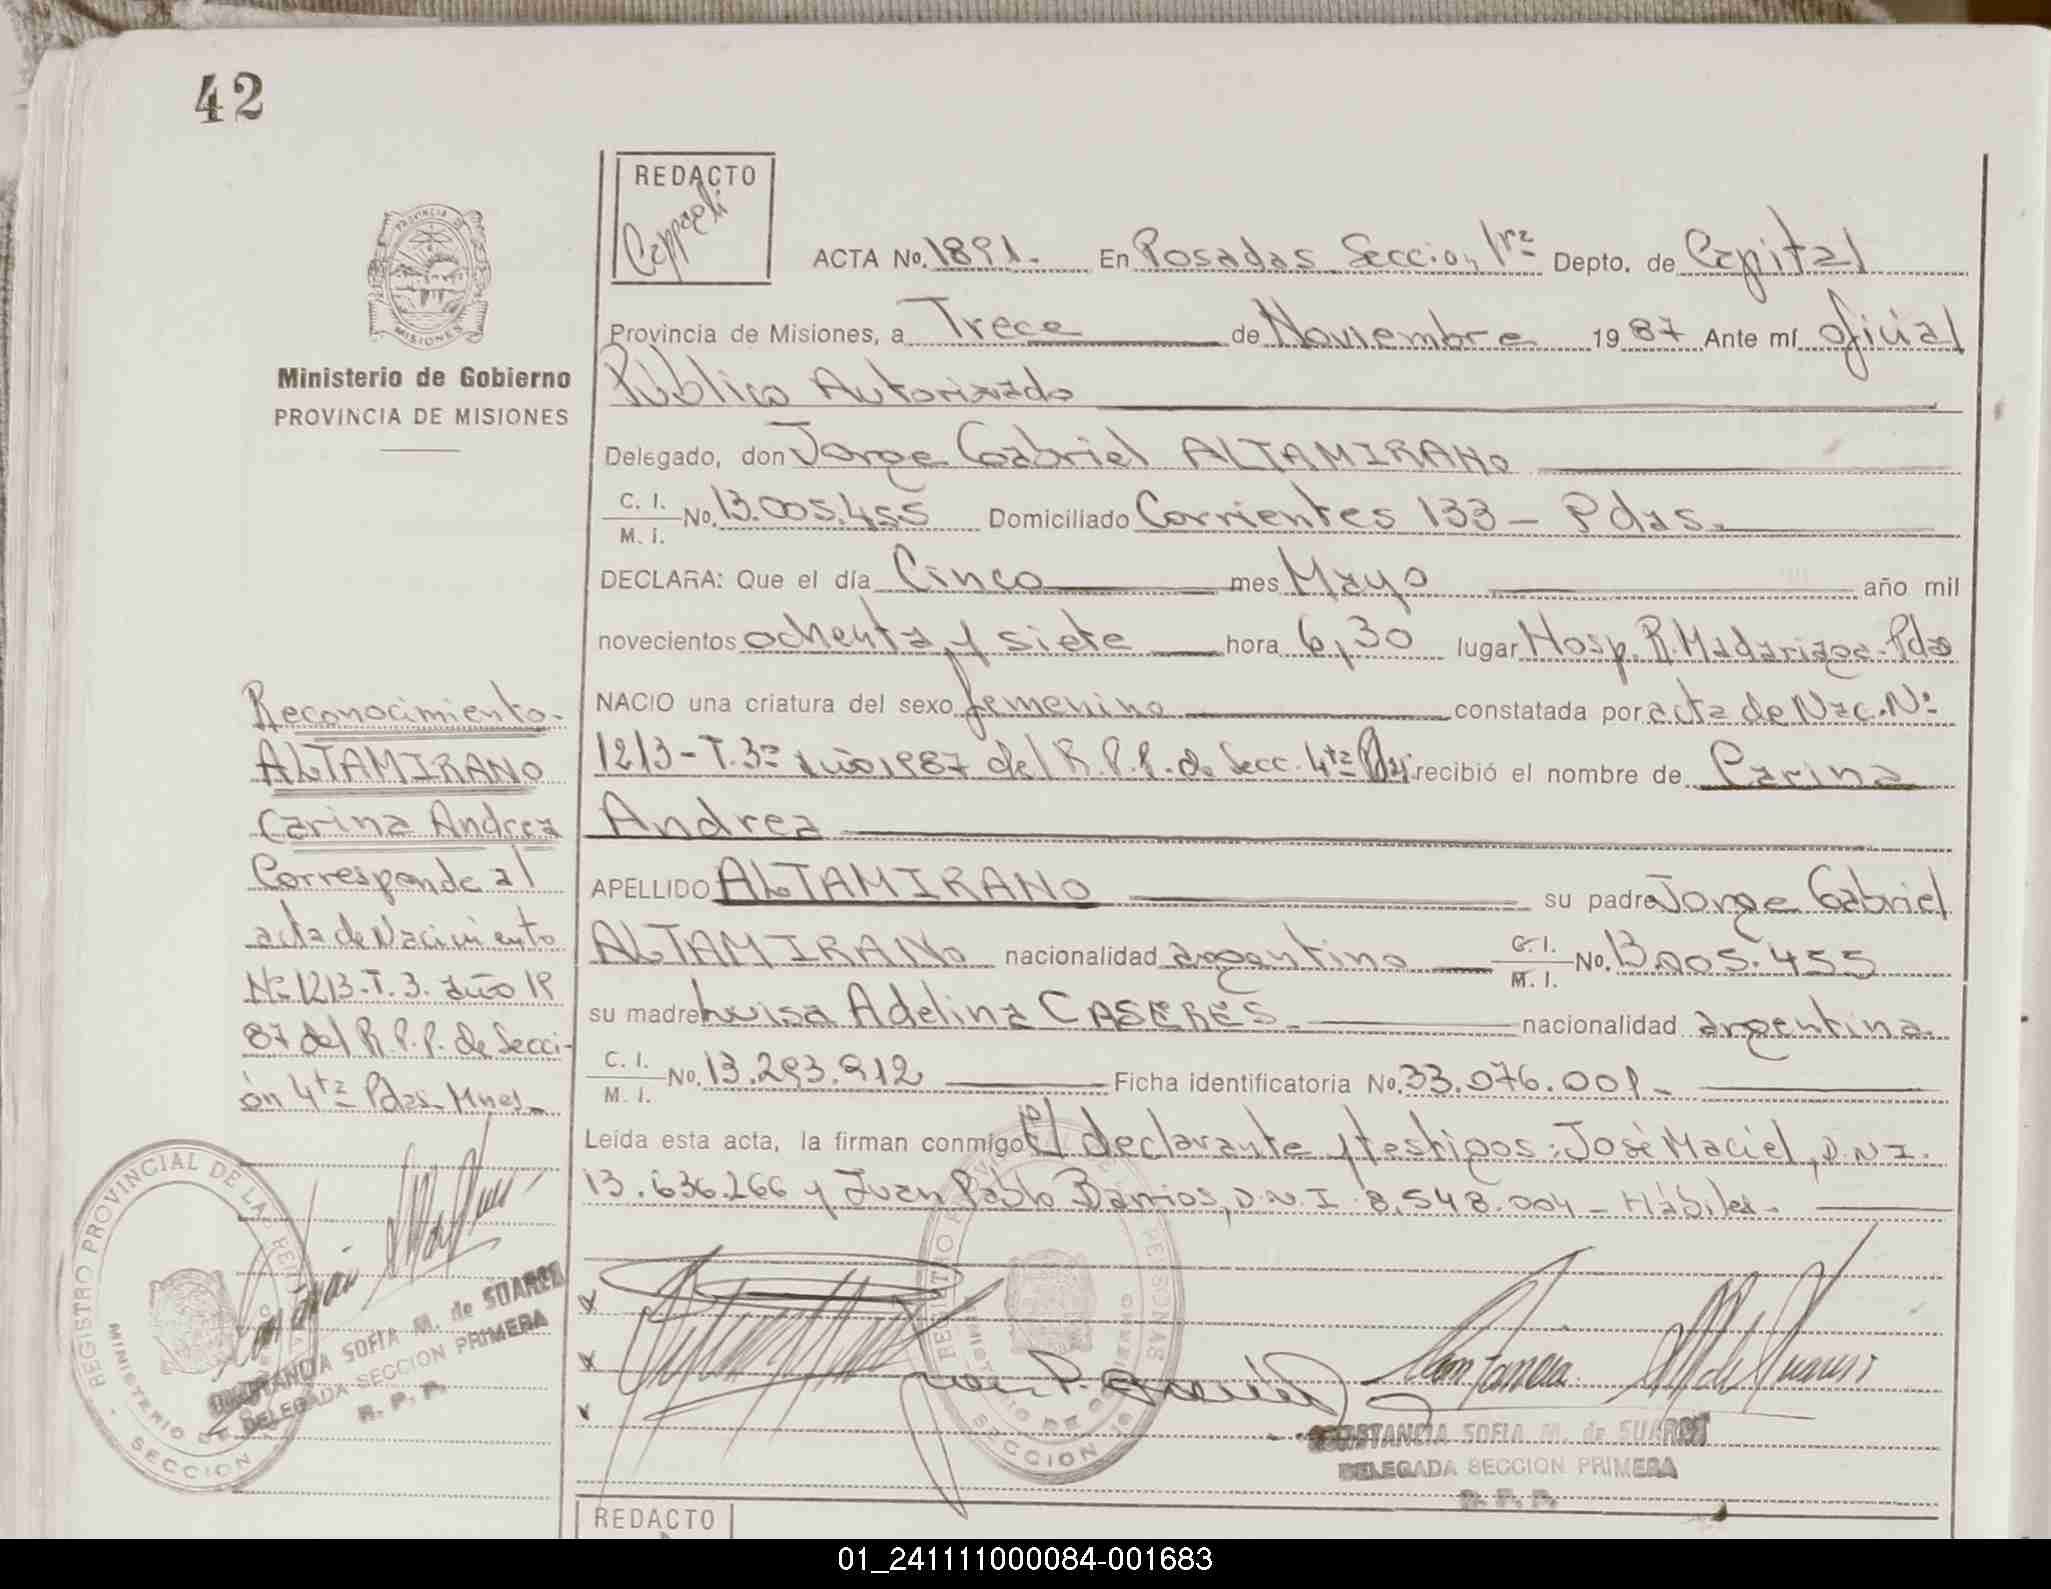 42
REDACTO
ACTA No. 1891. En Posadas Seccion 1ra Depto. de Capital
Provincia de Misiones, a Trece de Noviembre 1987 Ante mí oficial
Público Autorizado
Delegado, don Jorge Gabriel ALTAMIRANO
C. I.
M. I.
No. 13.005.455 Domiciliado Corrientes 133 - Pdas.
DECLARA: Que el día Cinco mes Mayo año mil
novecientos ochenta y siete hora 6,30 lugar Hosp. R. Madariaga - Pdas
NACIO una criatura del sexo femenino constatada por acta de Nac. Nº
1213 - T. 3º año 1987 del R.P.P. de Secc. 4ta Pdas recibió el nombre de Carina
Andrea
APELLIDO ALTAMIRANO su padre Jorge Gabriel
ALTAMIRANO nacionalidad argentino C. I.
M. I.
No. 13.005.455
su madre Luisa Adelina CASERES. nacionalidad argentina.
C. I.
M. I.
No. 13.293.912 Ficha identificatoria No. 33.076.001 -
Leída esta acta, la firman conmigo el declarante y testigos: José Maciel, D.N.I.
13.636.266 y Juan Pablo Barrios, D.N.I. 8.548.004 - Hábiles.
CONSTANCIA SOFIA M. de SUARES
DELEGADA SECCION PRIMERA
R. P. P.
PROVINCIA DE
MISIONES
Ministerio de Gobierno
PROVINCIA DE MISIONES
Reconocimiento.
ALTAMIRANO
Carina Andrea
Corresponde al
acta de Nacimiento
Nº 1213. T. 3. año 19
87 del R.P.P. de Secci-
ón 4ta Pdas. Mnes.
REGISTRO PROVINCIAL DE LAS PERSONAS
MINISTERIO DE GOBIERNO
SECCION
CONSTANCIA SOFIA M. de SUARES
DELEGADA SECCION PRIMERA
R. P. P.
REDACTO
01_241111000084-001683